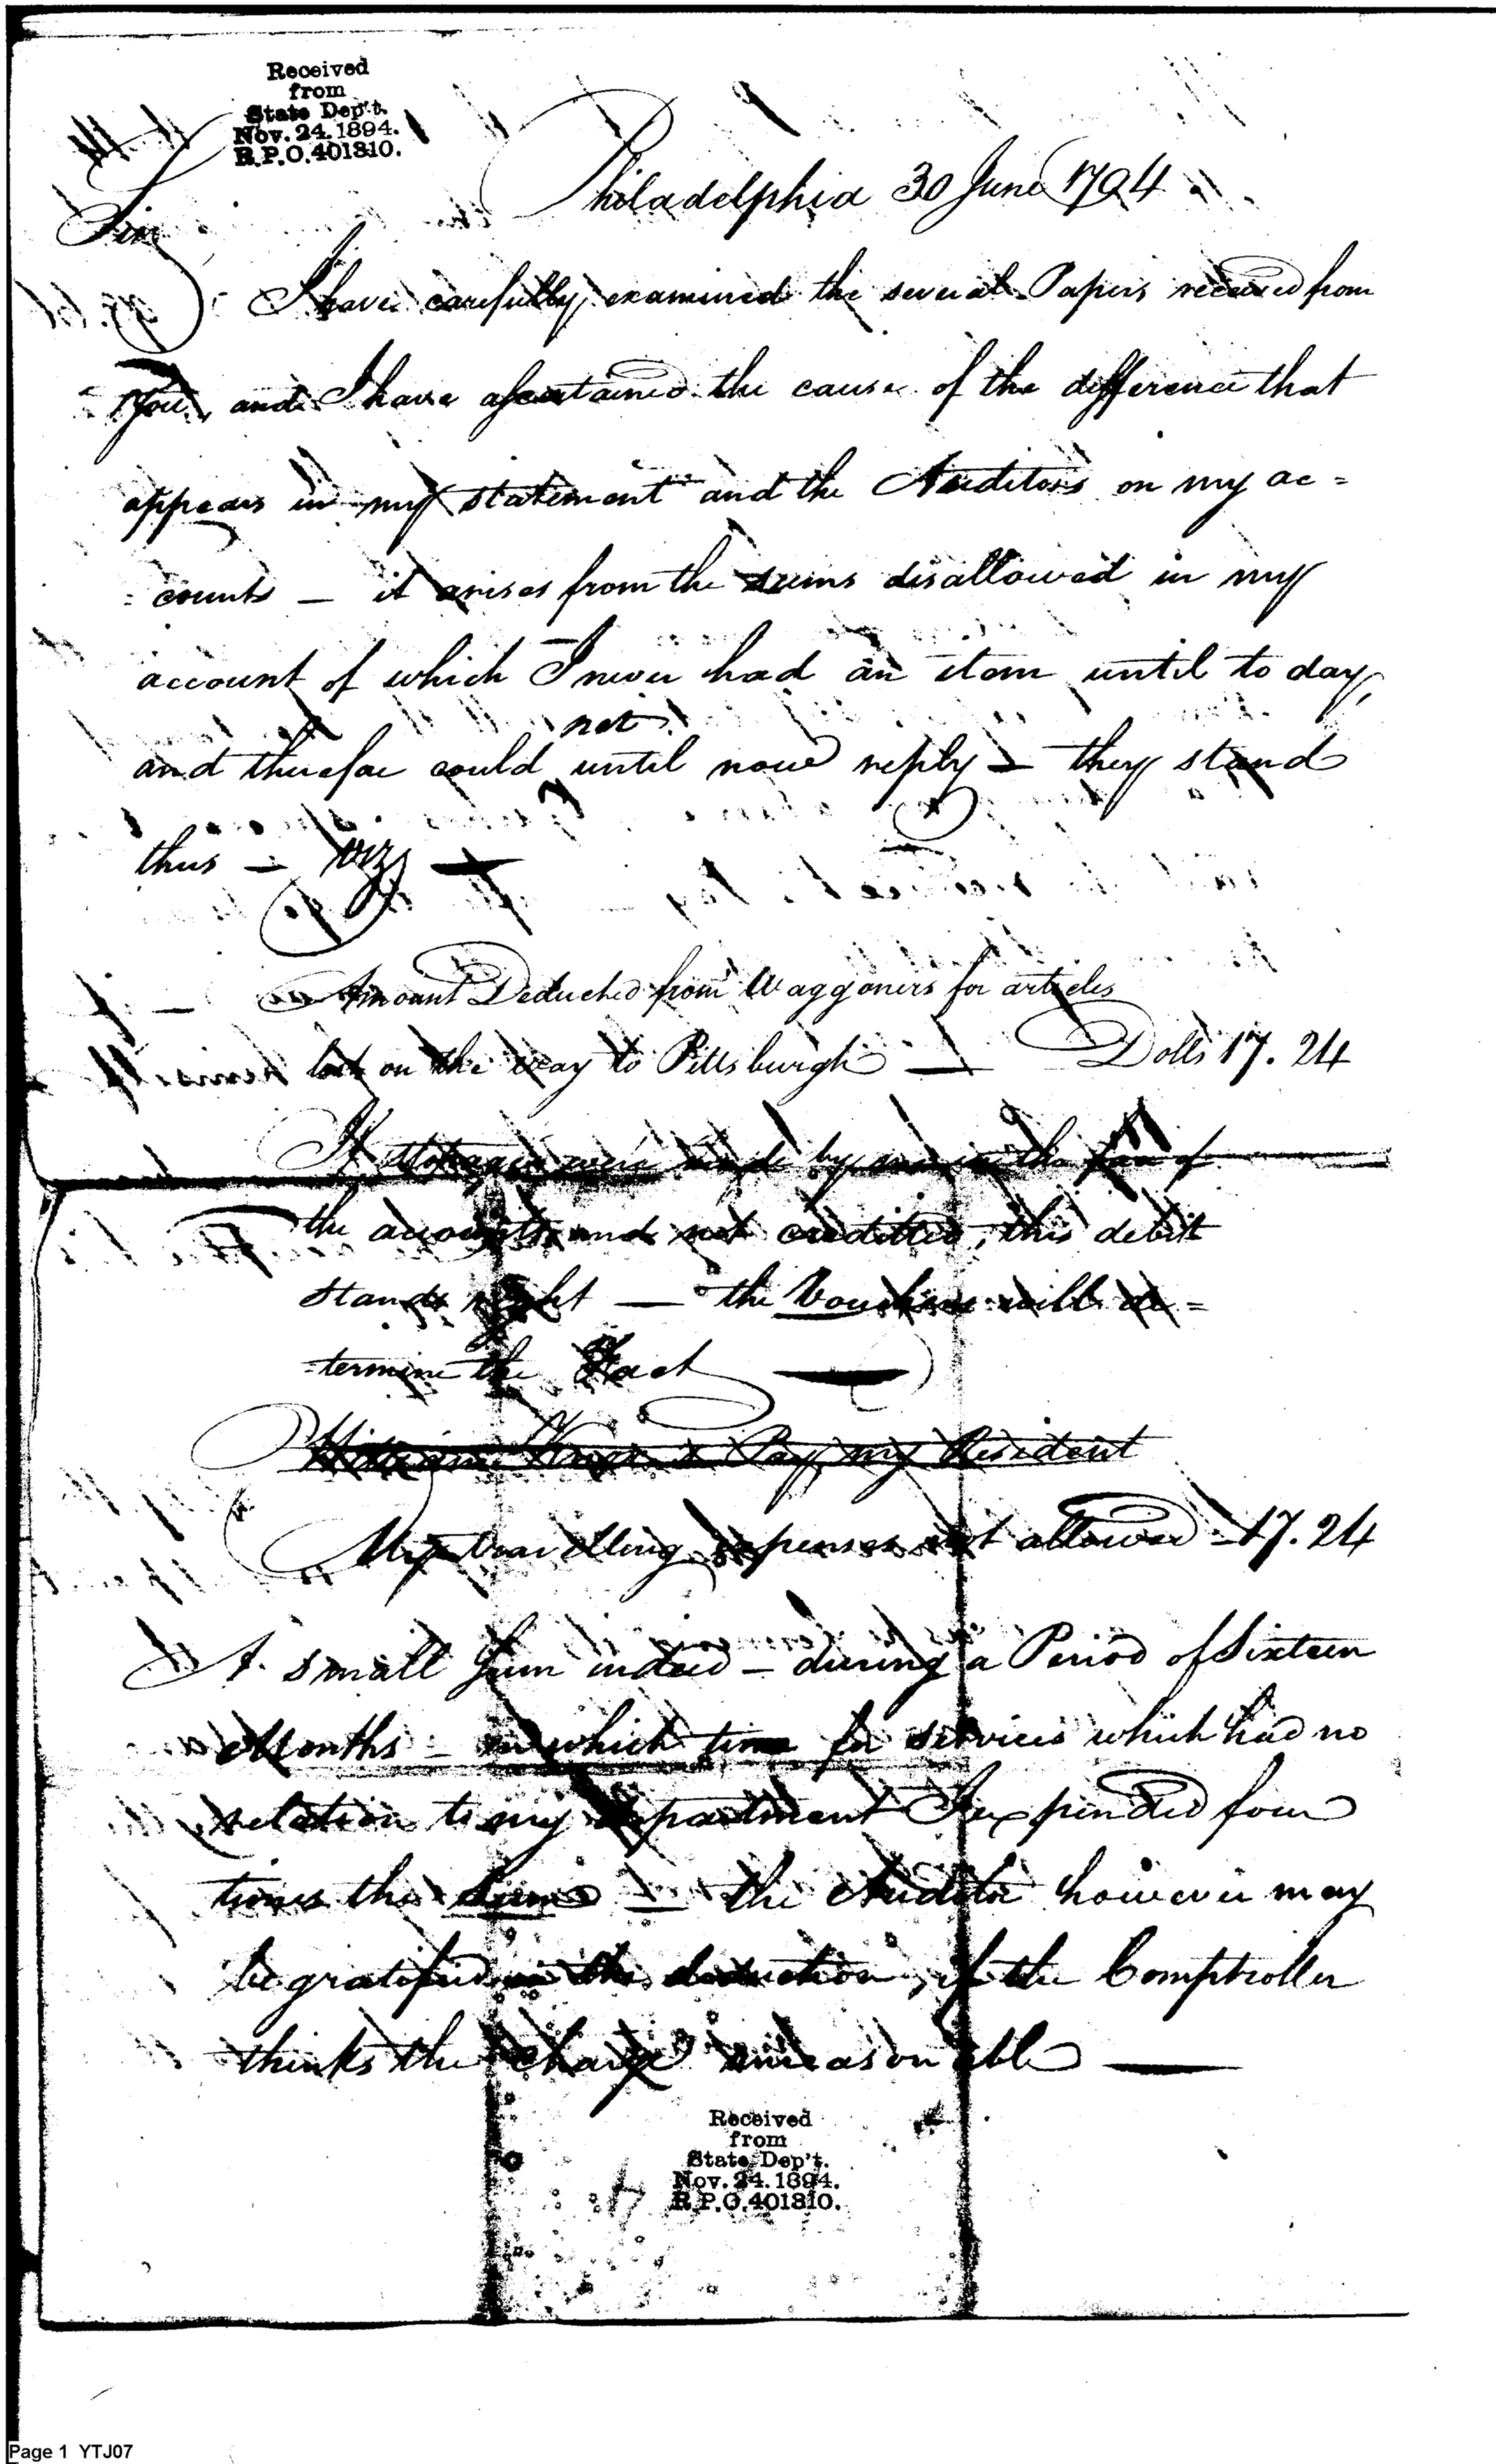 Received
from
State Dep't.
Nov. 24. 1894.
R.P.O. 401310.
Philadelphia 30 June 1794
Sir
I have carefully examined the several Papers received from
you, and I have ascertained the cause of the difference that
appears in my statement and the Auditors on my ac=
=counts — it arises from the sums disallowed in my
account of which I never had an item until to day,
not
and therefore could until now reply — they stand
thus — viz —
Amount Deducted from Waggoners for articles
lost on the way to Pittsburgh — Dolls 17.24
If stoppages were made by me in the face of
the accounts and not credited, this debit
stands right — the Vouchers will de=
=termine the Fact —
Pay, my Resident
My travelling expenses not allowed — 17.24
A small Sum indeed — during a Period of Sixteen
Months — in which time for services which had no
relation to my department I expended four
times the sum — the Auditor however may
be gratified in this deduction, if the Comptroller
thinks the charge unreasonable —
Received
from
State Dep't.
Nov. 24. 1894.
R.P.O. 401310.
Page 1 YTJ07